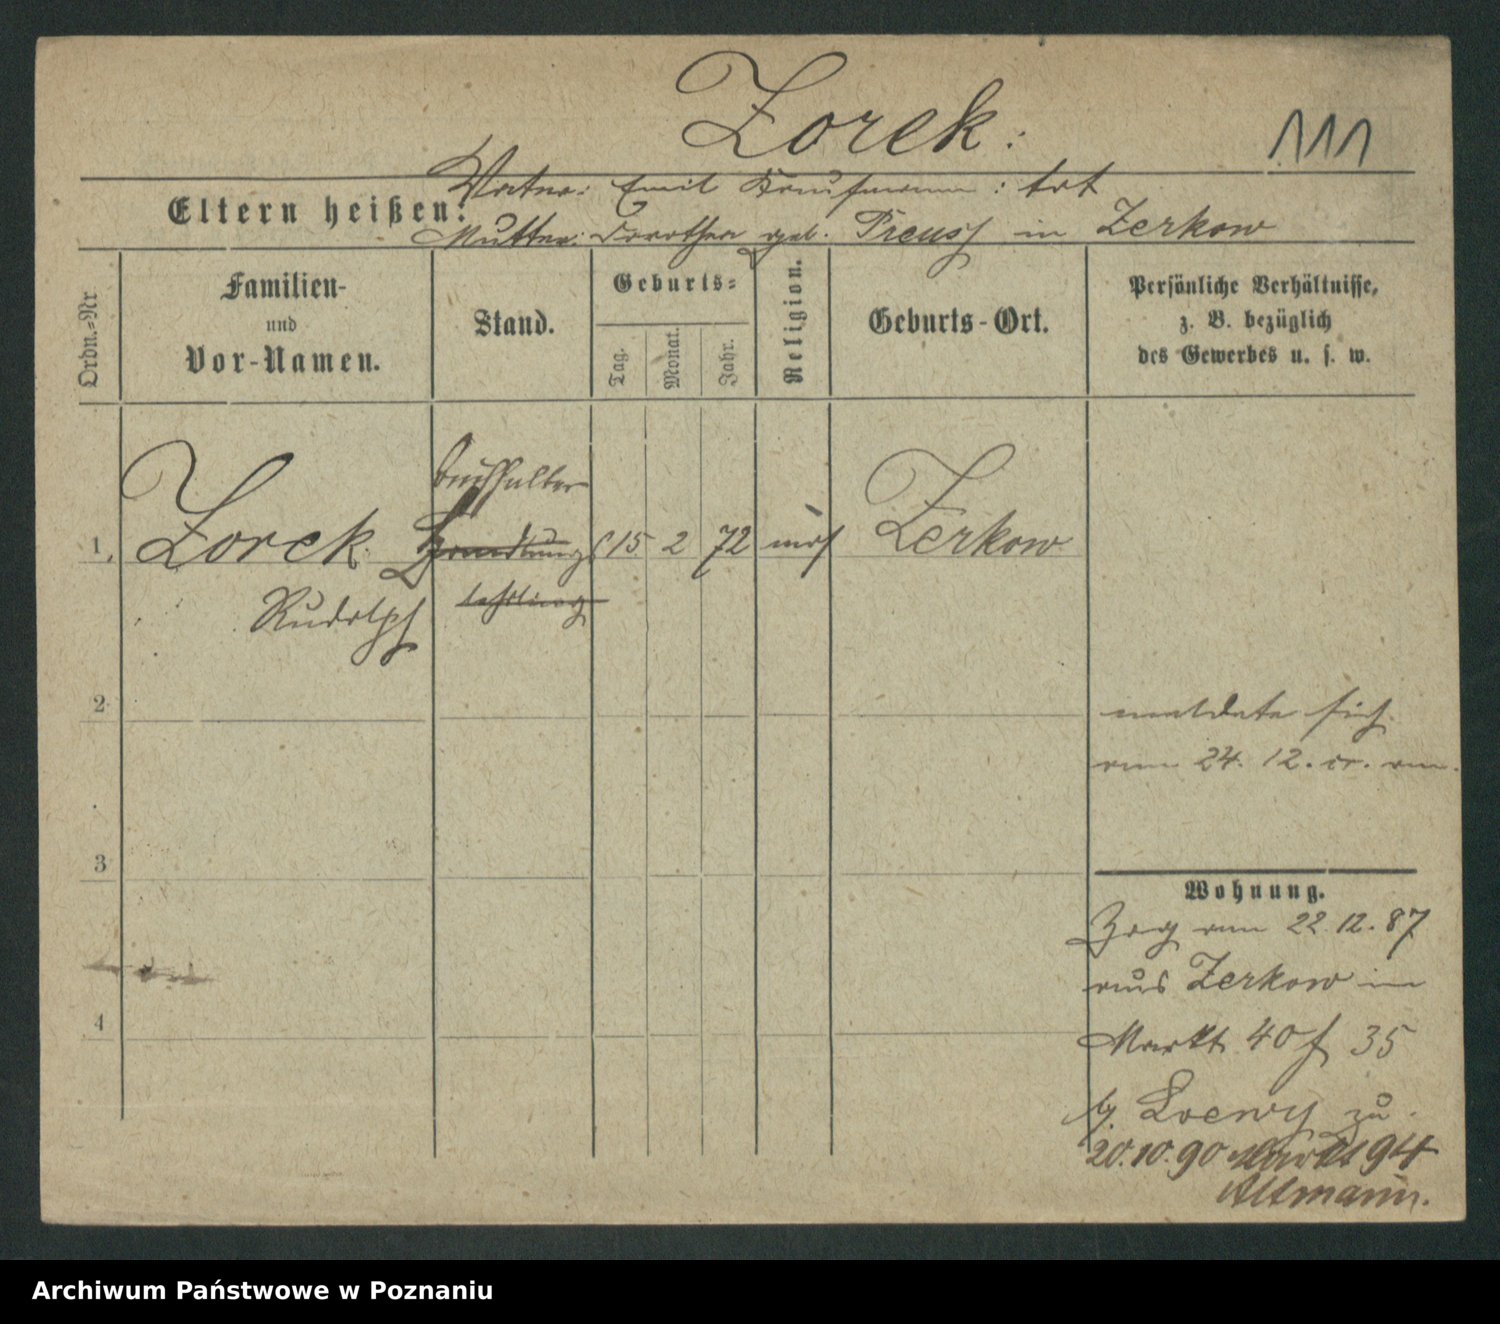 Zorek:
111
Vater: Emil Kaufmann: tot
Eltern heißen:
Mutter: Dorothea geb. Preuss in Zerkow
Ordn.=Nr
Familien-
und
Vor-Namen.
Stand.
Geburts=
Tag.
Monat.
Jahr.
Religion.
Geburts-Ort.
Persönliche Verhältnisse,
z. B. bezüglich
des Gewerbes u. s. w.
Buchhalter
1. Zorek Handlungs 15 2 72 mos Zerkow
Rudolph lehrling
2
meldete sich
am 24. 12. cr. an.
3
Wohnung.
Zog am 22.12.87
aus Zerkow in
4
Markt 40 f 35
b. Loewy zu.
20.10.90 Markt 94
Altmann.
Archiwum Państwowe w Poznaniu